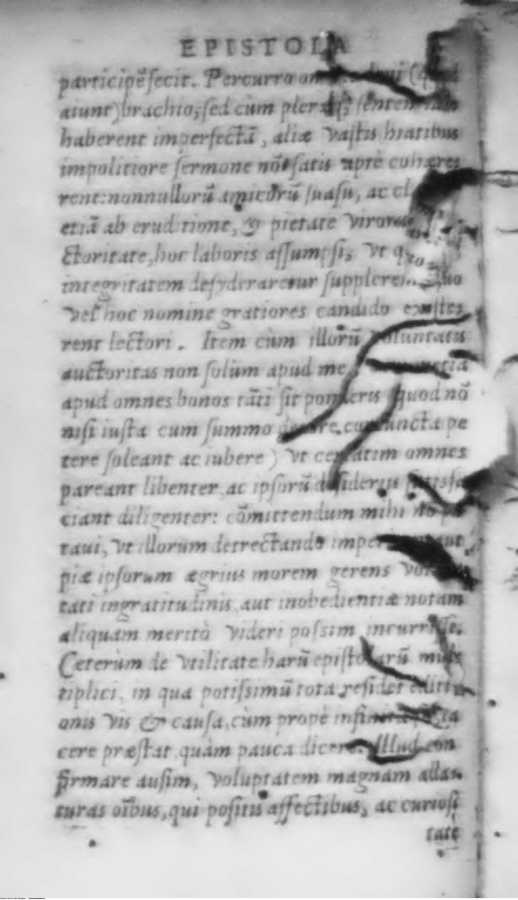 EPISTOLA
participẽ fecit. Percurro
aiunt) brachio; sed cùm
haberent imperfectã, aliæ vastis hiatibus
impolitiore sermone nõ satis aptè cohæres
rent: nonnullorũ amicorũ suasu, ac
etiã ab eruditione, & pietate
ctoritate, hoc laboris assumpsi, vt
integritatem desyderaretur
vel hoc nomine gratiores candido
rent lectori. Item cùm illorũ voluntatis
auctoritas non solùm apud me
apud omnes bonos tãti sit ponderis (quod nõ
nisi iusta cum summo coniuncta pe
tere soleant ac iubere) vt certatim omnes
pareant libenter, ac ipsorũ desideriis satisfa
ciant diligenter: cõmittendum mihi nõ
taui, vt illorum detrectando
piæ ipsorum ægrius morem gerens
tati ingratitudinis, aut inobedientiæ notam
aliquam meritò videri possim incurrisse.
Ceterùm de vtilitate harũ epistolarũ mul
tiplici, in qua potissimũ tota residet editi
onis vis & causa, cùm propè infinita
cere præstat, quàm pauca dicere. Illud con
firmare ausim, voluptatem magnam alla
turas oĩbus, qui positis affectibus, ac curiosi
tate